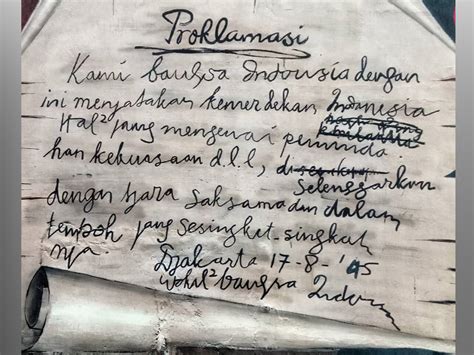 Proklamasi
Kami bangsa Indonesia dengan
ini menjatakan kemerdekan Indonesia
Hal² jang mengenai peminda
han kekuasaan d.l.l, di
Selenggarkan
dengan tjara saksama dan dalam
tempoh jang sesingket-singkat
nja.
Djakarta 17-8-'45
Wakil² bangsa Indon